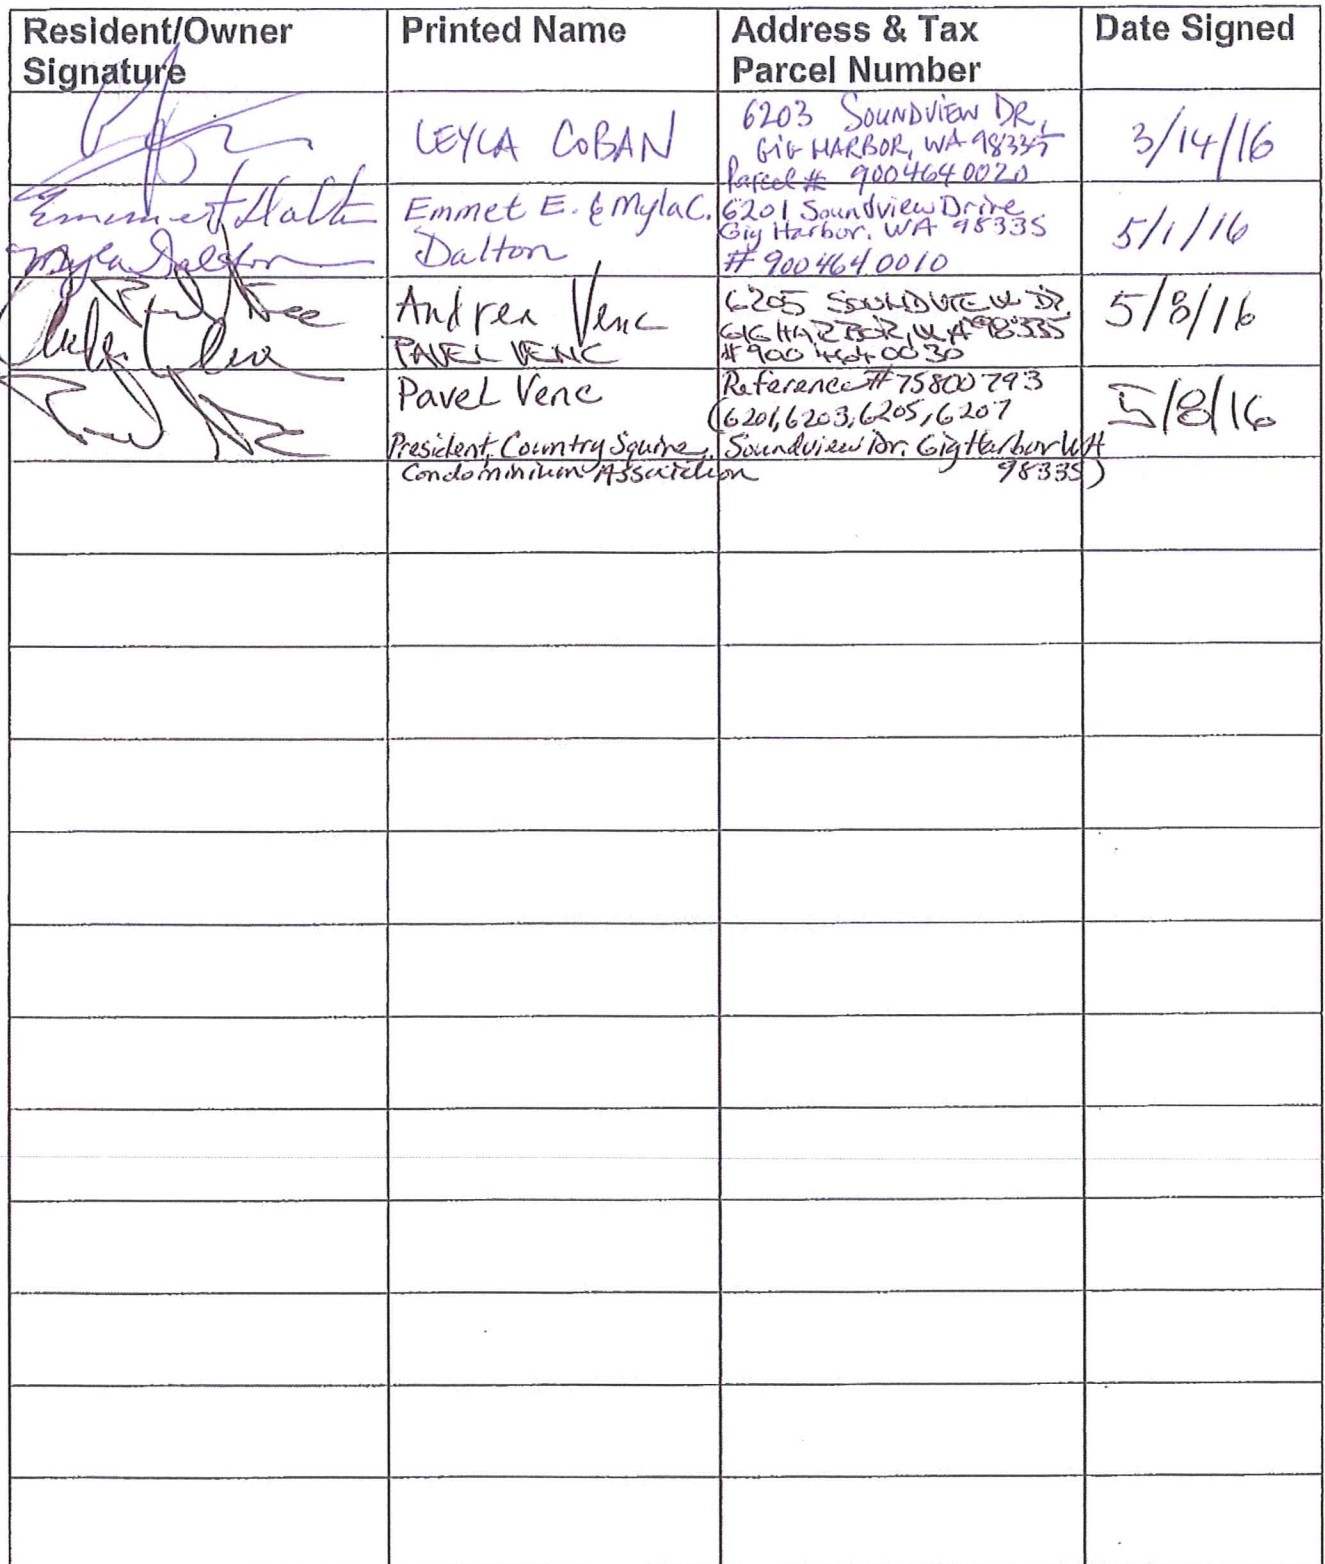 Resident/Owner Signature
Printed Name
Address & Tax Parcel Number
Date Signed
LEYLA COBAN
6203 SOUNDVIEW DR,
GIG HARBOR, WA 98335
Parcel # 9004640020
3/14/16
Emmet Dalton
Myla Dalton
Emmet E. & Myla C.
Dalton
6201 Soundview Drive
Gig Harbor, WA 98335
# 9004640010
5/1/16
Andrea Venc
PAVEL VENC
6205 SOUNDVIEW DR,
GIG HARBOR, WA 98335
# 900 464 0030
5/8/16
Pavel Venc
President, Country Squire,
Condominium Association
Reference # 75800793
(6201, 6203, 6205, 6207
Soundview Dr. Gig Harbor WA
98335)
5/8/16